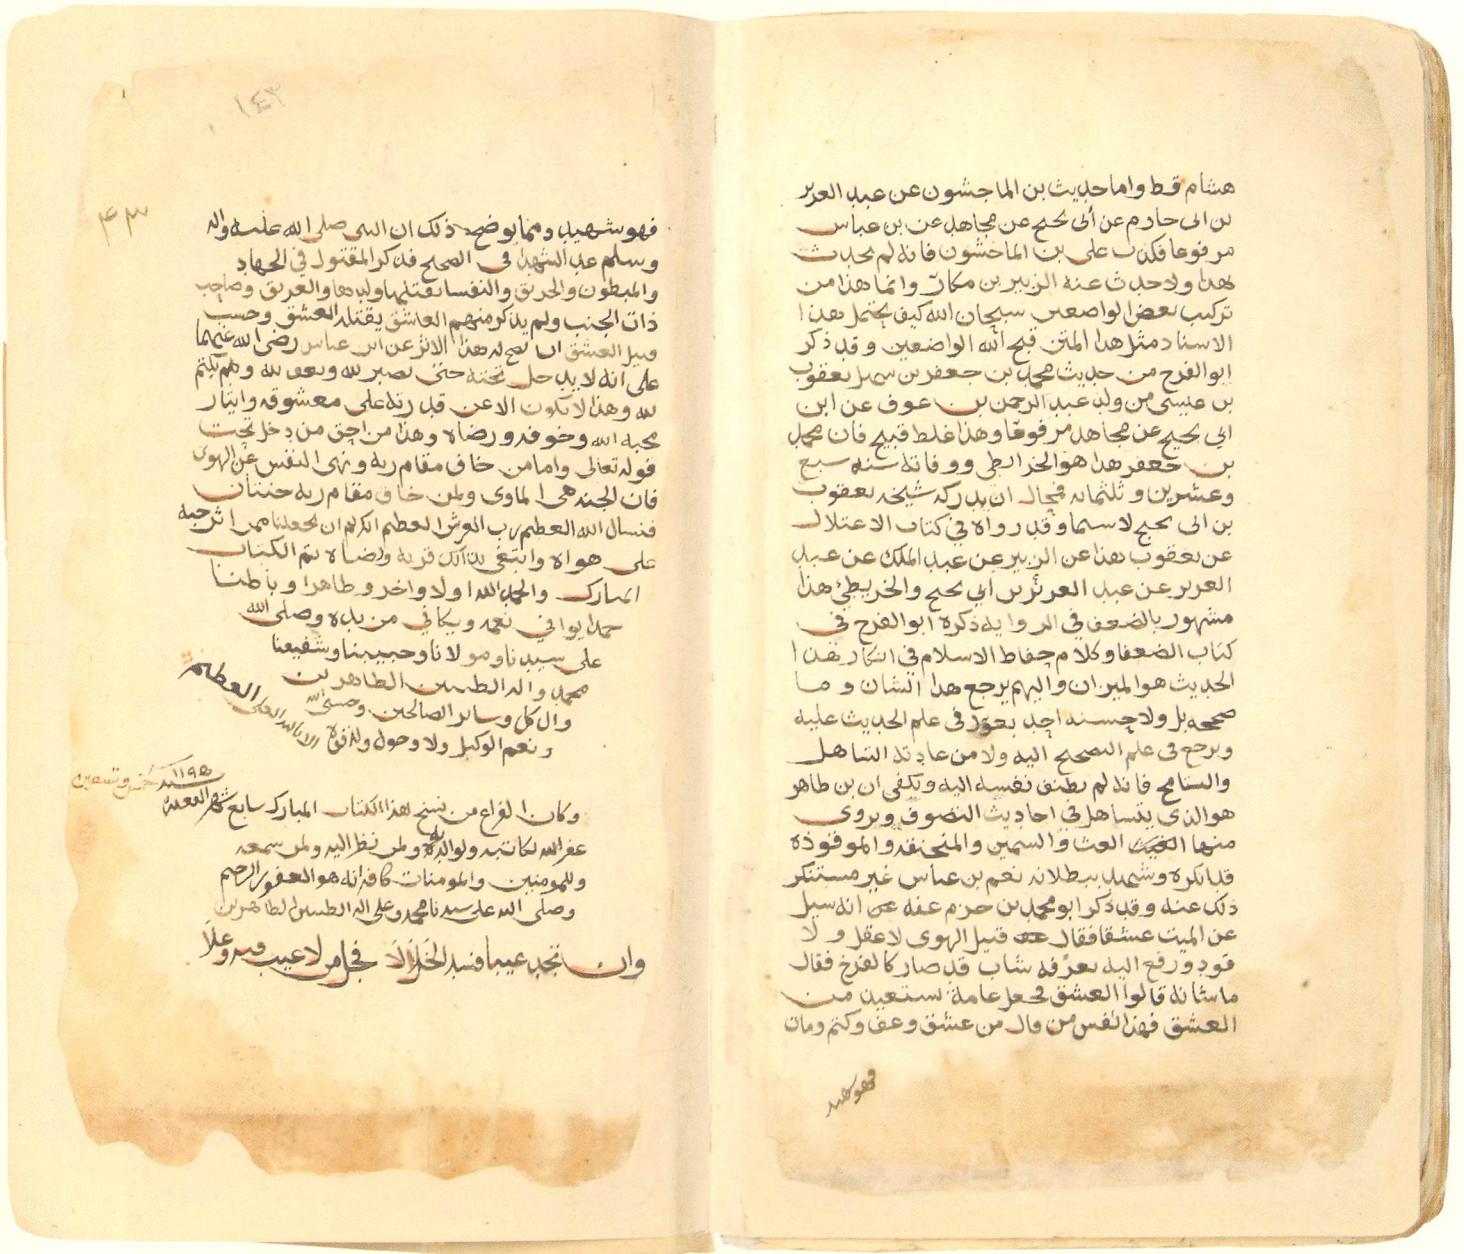 هشام قط واما حديث بن الماجشون عن عبد العزيز
بن ابى حازم عن أبى نجيح عن مجاهد عن بن عباس
مرفوعا فكذب على بن الماجشون فانه لم يحدث
بهذا ولا حدث عنه الزبير بن بكار وانما هذا من
تركيب بعض الواضعين سبحان الله كيف يحتمل هذا
الاسناد مثل هذا المتن قبح الله الواضعين وقد ذكر
ابو الفرج من حديث محمد بن جعفر بن سهل يعقوب
بن عيسى من ولد عبد الرحمن بن عوف عن ابن
ابي نجيح عن مجاهد مرفوعا وهذا غلط قبيح فان محمد
بن جعفر هذا هو الخرايطي ووفاته سنه سبع
وعشرين وثلثمائه فمحال ان يدركه شيخه يعقوب
بن ابى نجيح لاسيما وقد رواه في كتاب الاعتلال
عن يعقوب هذا عن الزبير عن عبد الملك عن عبد
العزيز عن عبد العزيز بن ابي نجيح والخريطئ هذا
مشهور بالضعف في الروايه ذكره ابو الفرج فى
كتاب الضعفا وكلام حفاط الاسلام في انكار هذا
الحديث هو الميزان واليهم يرجع هذا الشان وما
صححه بل ولا حسنه احد يعول فى علم الحديث عليه
ويرجع فى علم التصحيح اليه ولا من عادته التساهل
والتسامح فانه لم يطنق نفسه اليه ويكفى ان بن طاهر
هو الذى يتساهل في احاديث التصوف ويروى
منها الغث والسمين والمنخنقه والموقوذه
قد انكره وشهد ببطلانه نعم بن عباس غير مستنكر
ذلك عنه وقد ذكر ابو محمد بن حزم عنه انه سيل
عن الميت عشقا فقال قتيل الهوى لا عقل ولا
قود ورفع اليه بعرفه شاب قد صار كالفرخ فقال
ما شانه قالوا العشق فجعل عامة يستعيذ من
العشق فهذا نفس من قال من عشق وعف وكتم ومات
فهو شهيد
١٤٣
٤٣
فهو شهيد ومما يوضح ذلك ان النبى صلى الله عليه واله
وسلم عد الشهدا فى الصحيح فذكر المقتول في الجهاد
والمبطون والحريق والنفسا يقتلها ولدها والغريق وصاحب
ذات الجنب ولم يذكر منهم العاشق يقتله العشق وحسب
قتيل العشق ان يصح له هذا الاثر عن ابن عباس رضى الله عنهما
على انه لا يدخل تحته حتى يصبر لله ويعف لله ويكتم
لله وهذا لا يكون الا عن قدرته على معشوقه وايثار
محبه الله وخوفه ورضاه وهذا من احق من دخل تحت
قوله تعالى واما من خاف مقام ربه ونهى النفس عن الهوى
فان الجنه هى الماوى ولمن خاف مقام ربه جنتان
فنسال الله العطيم رب العرش العطيم الكريم ان يجعلنا ممن اثر حبه
على هواه وابتغى بذلك قربه ورضاه تم الكتاب
المبارك والحمد لله اولا واخر وظاهرا وباطنا
حمدا يوافي نعمه ويكافي مزيده وصلى الله
على سيدنا ومولانا وحبيبنا وشفيعنا
محمد واله الطيبين الطاهرين
وال كل وساير الصالحين وحسبى الله
ونعم الوكيل ولا حول ولا قوة الا بالله العلى العطيم
وكان الفراغ من نسخ هذا الكتاب المبارك سابع شهر القعده سنة ١١٩٥ خمس وتسعين
غفر الله لكاتبه ولوالديه ولمن نظر اليه ولمن سمعه
وللمومنين والمومنات كافه انه هو الغفور الرحيم
وصلى الله على سيدنا محمد وعلى اله الطيبين الطاهرين
وان تجد عيبا فسد الخللا فجل من لا عيب فيه وعلا